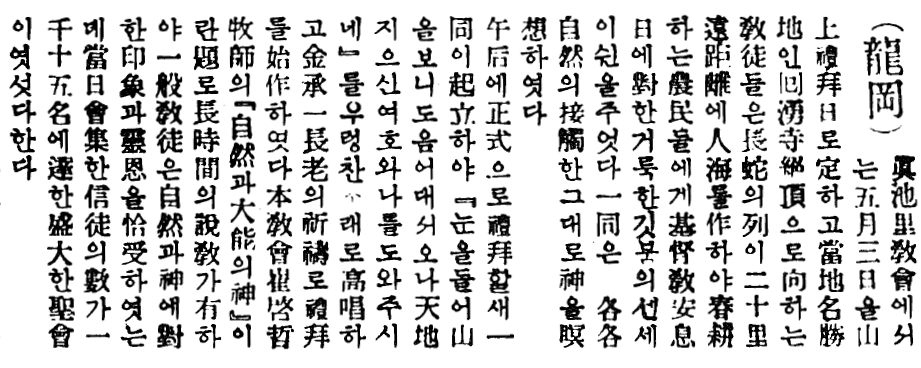 （龍岡）
眞池里敎會에서
는五月三日을山
上禮拜日로定하고當地名勝
地인回湧寺絶頂으로向하는
敎徒들은長蛇의列이二十里
遠距離에人海를作하야春耕
하는農民들에게基督敎安息
日에對한거룩한깃붐의선세
이쉰을주엇다一同은 各各
自然의接觸한그대로神을瞑
想하엿다
午后에正式으로禮拜할새一
同이起立하야『눈을들어山
을보니도음어대서오나天地
지으신여호와나를도와주시
네』를우렁찬 래로高唱하
고金承一長老의祈禱로禮拜
를始作하엿다本敎會崔啓哲
牧師의『自然과大能의神』이
란題로長時間의說敎가有하
야一般敎徒은自然과神에對
한印象과靈恩을恰受하엿는
데當日會集한信徒의數가一
千十五名에達한盛大한聖會
이엿섯다한다